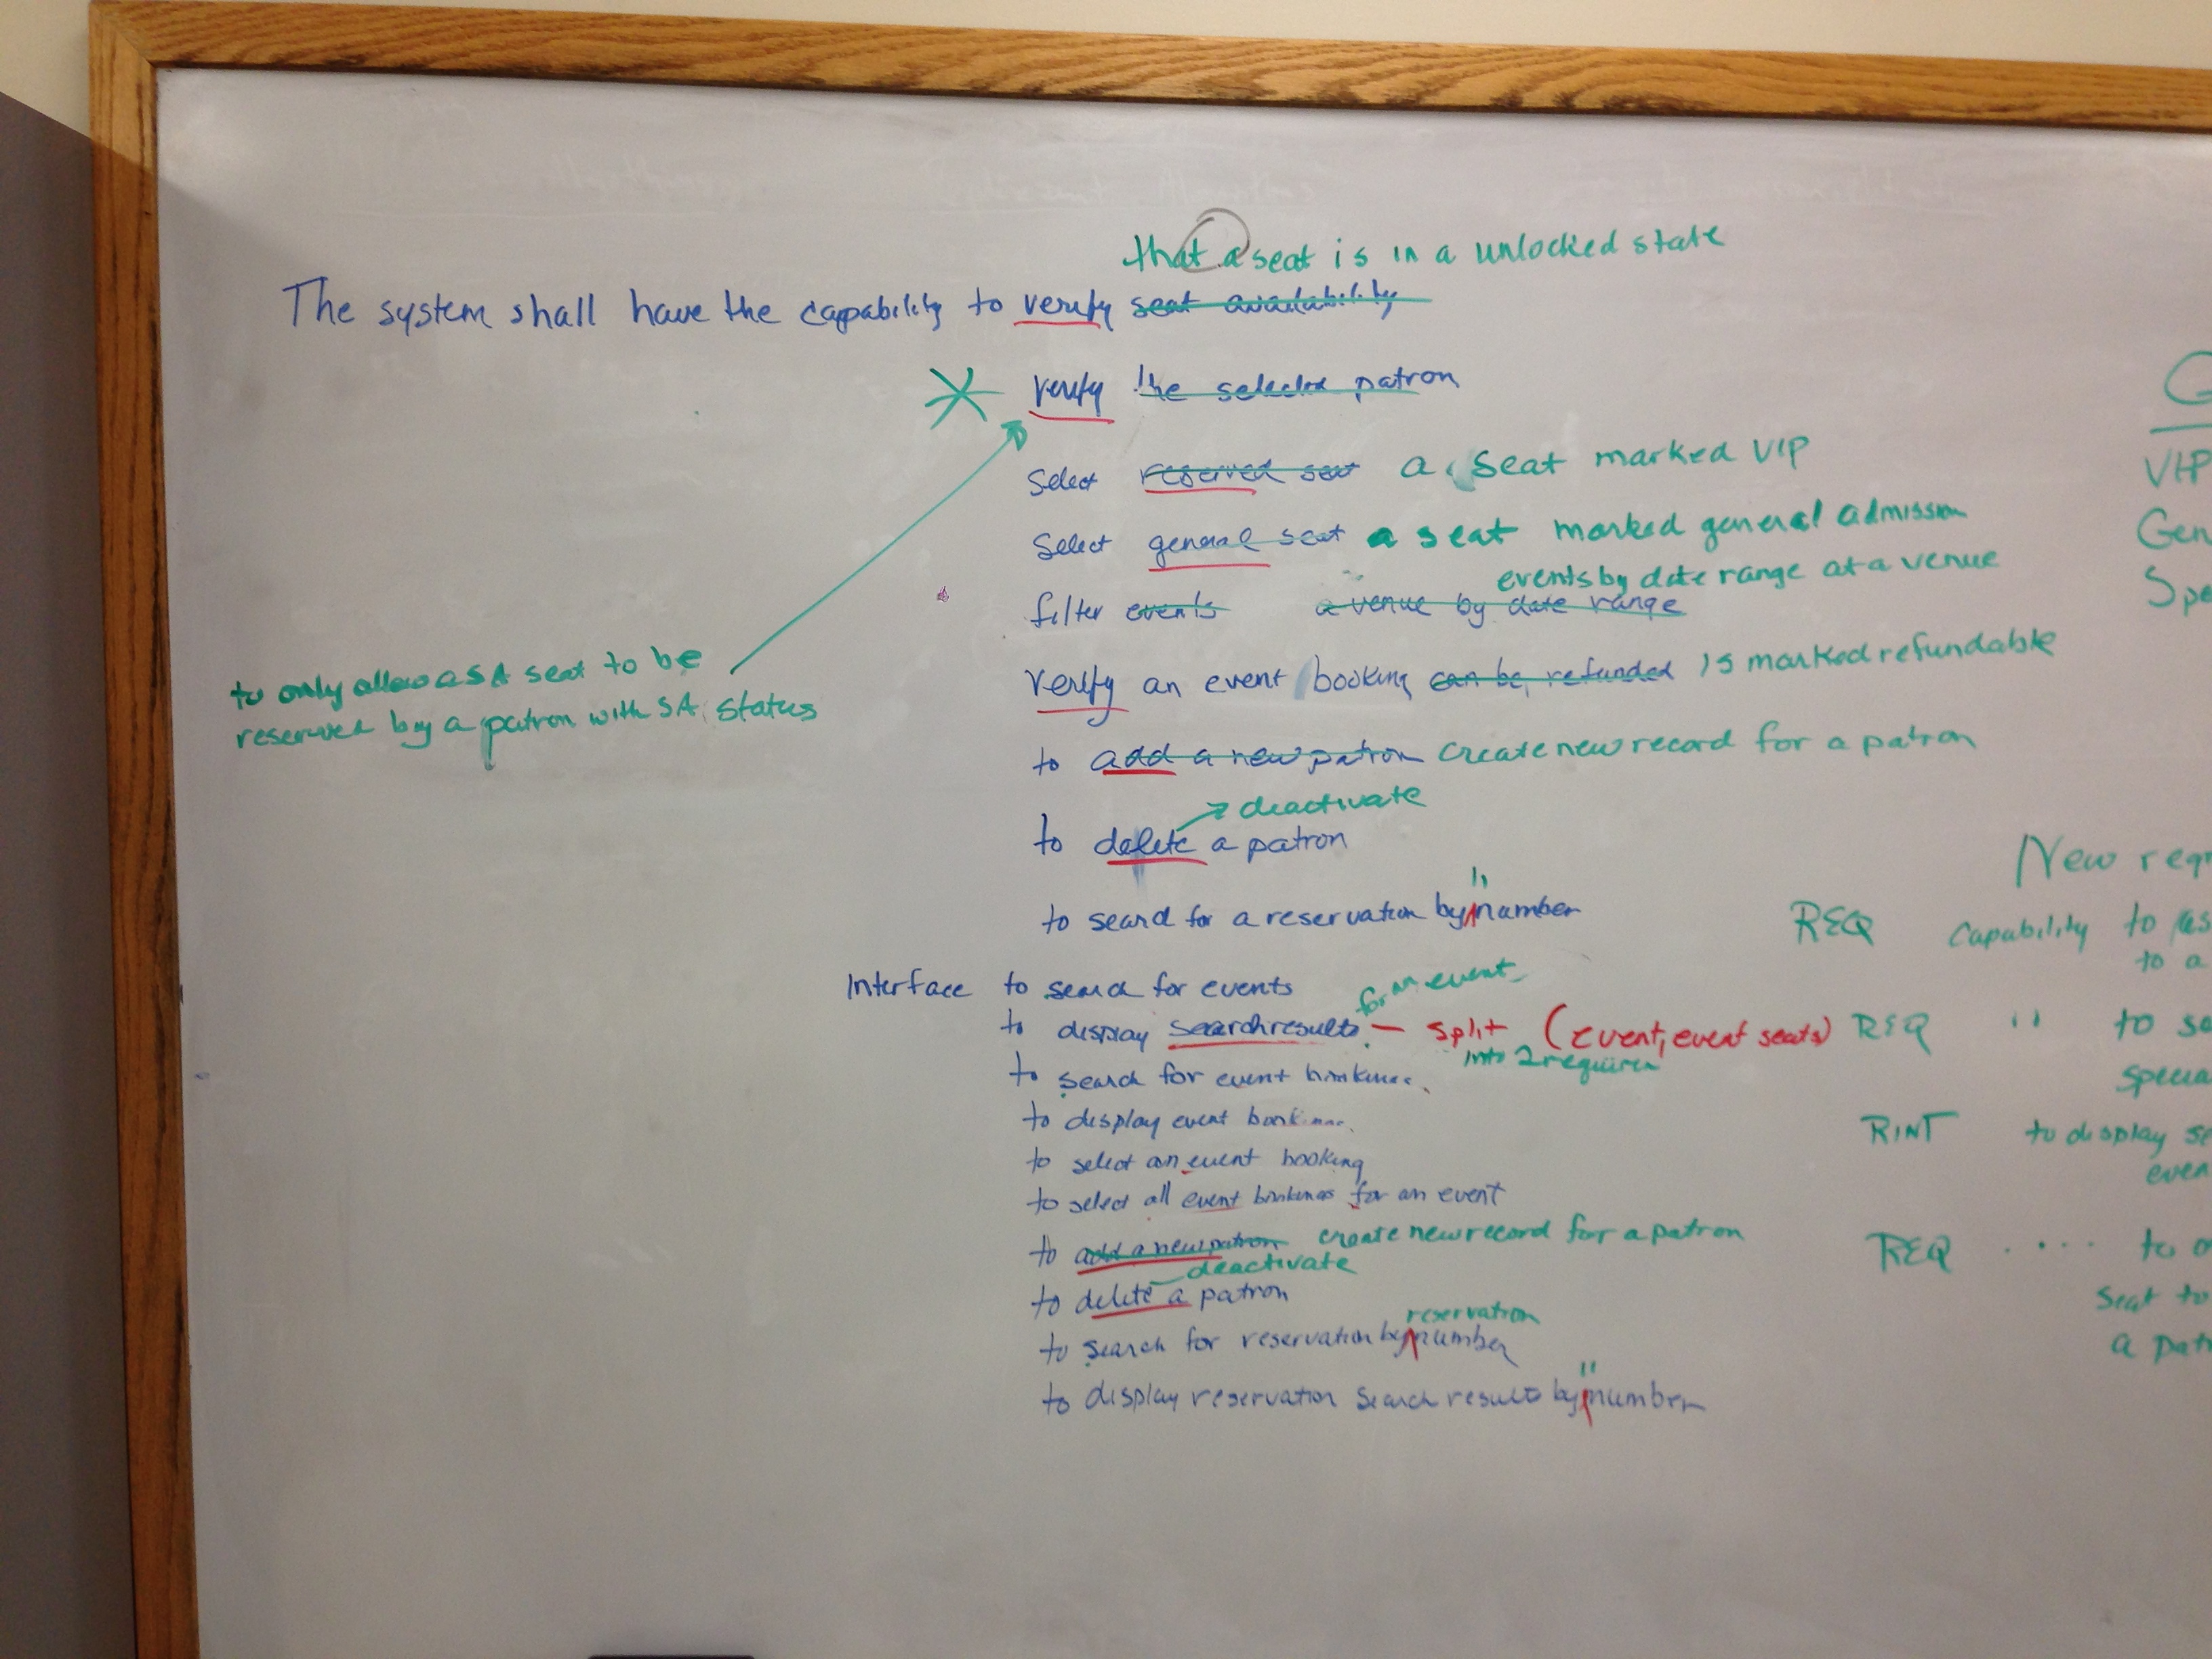 that a seat is in a unlocked state
The system shall have the capability to verify seat availability
verify the selected patron
select reserved seat a seat marked VIP
select general seat a seat marked general admission
events by date range at a venue
filter events a venue by date range
to only allow a SA seat to be
reserved by a patron with SA status
Verify an event booking can be refunded is marked refundable
to add a new patron create new record for a patron
deactivate
to delete a patron
"
to search for a reservation by number
Interface to search for events
for an event
to display search results - split (event, event seats)
into 2
to search for event
to display event
to select an event booking
to select all event bookings for an event
to add a new patron create new record for a patron
deactivate
to delete a patron
reservation
to search for reservation by number
"
to display reservation search result by number
G
VIP
Gen
Spe
New req
REQ capability to as
to a
REQ " to se
specia
RINT to display se
even
REQ .... to o
seat to
a patr